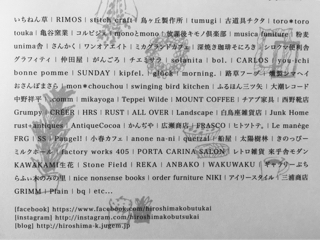 いちねん草 | RIMOS | stitch craft | 鳥ヶ丘製作所 | tumugi | 古道具チクタ | toro*toro
toutou | 亀谷窯業 | コルビジェ | monoとmono | 宮薗後モキノ倶楽部 | musica funiture | 粉麦
unima舎 | さんかく | ワンオアエイト | ミカグランドカフェ | 深焼き珈琲そにろき | シロクマ便利舎
グラフィティ | 仲田屋 | がんごろ | チエミサラ | sotanita | bol. | CARLOS | you ich
bonne pomme | SUNDAY | kipfel. | glück | morning. | 路草フーヅ | 燻製シマヘイ
おさんぽまさら | mon*chouchou | swinging bird kitchen | ふるほん三文 | 大剛レコード
中野祥平 | .comm | mikayoga | Teppei Wilde | MOUNT COFFEE | チアプ家具 | 西野靴店
Grumpy | CREER | HRS | RUST | ALL OVER | Landscape | 白鳥座雑貨店 | Junk Home
rust+antiques | AntiqueCocoa | かんぢや | 広瀬商店 | FRASCO | ヒトツトテ。| Le manège
FRG | SS | Pangel! | 小春カフェ | anone na-ni | quetzal | 船屋 | 太陽樹林 | きのっぴー
ミルクホール | factory works 405 | PORTA CARINA SALON | レトロ雑貨 来手舎モダン
KAWAKAMI生花 | Stone Field | REKA | ANBAKO | WAKUWAKU | ギャラリーぷち
らふぃ木のみの里 | nice nonsense books | order furniture NIKI | アイリースタイル | 三浦商店
GRIMM | Plain | bq | etc...
[facebook] https://www.facebook.com/hiroshimakobutsukai
[instagram] http://instagram.com/hiroshimakobutsukai
[blog] http://hiroshima-k.jugem.jp